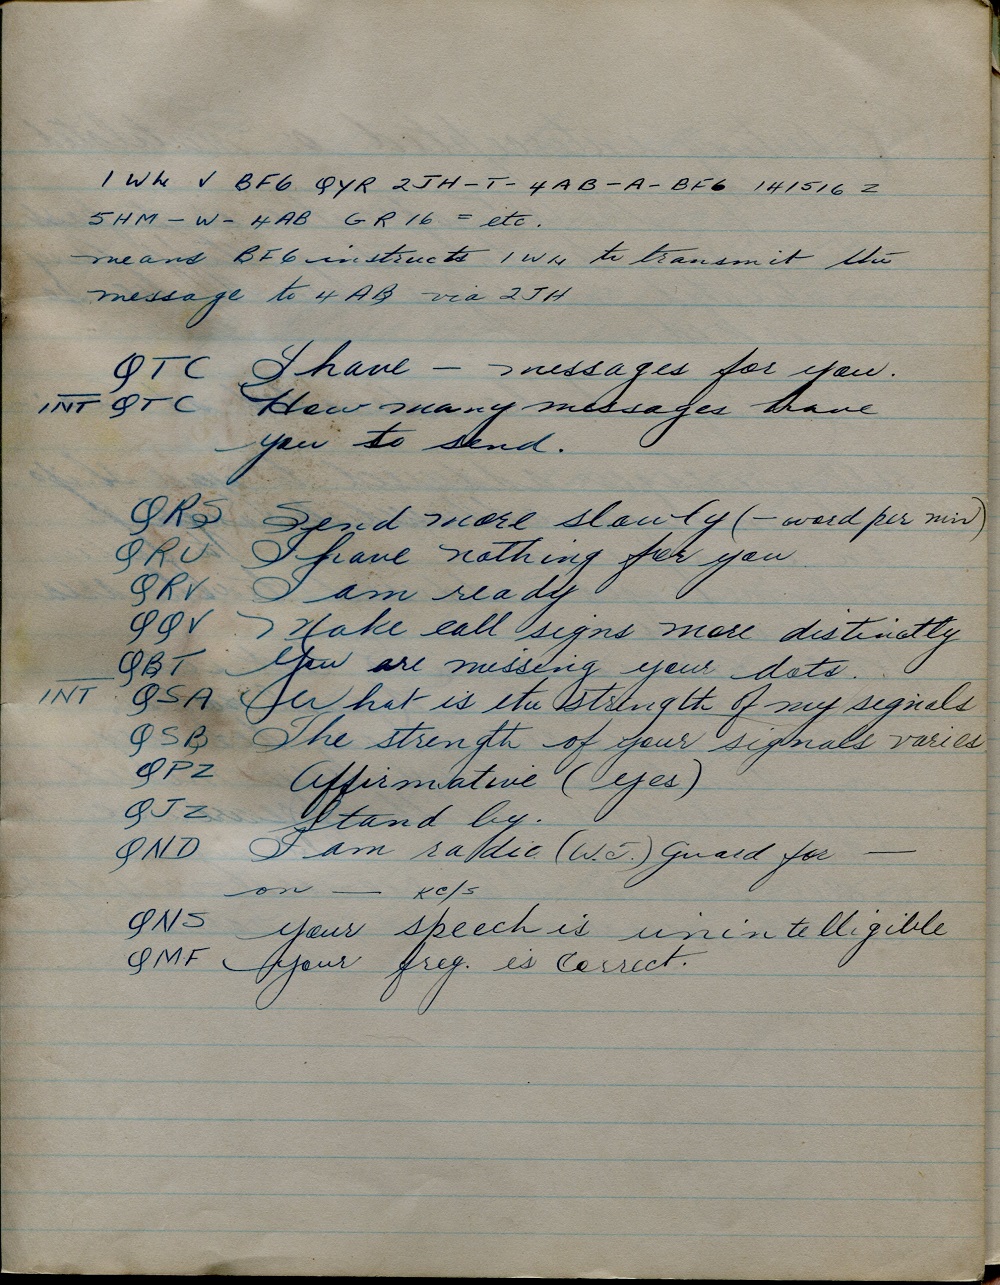 1WL4 V BF6 QYR 2JH-T-4AB-A-BF6 141516 Z
5HM-W-4AB GR16 = etc.
means BF6 instructs 1WL4 to transmit the
message to 4AB via 2JH
QTC I have — messages for you.
INT QTC How many messages have
you to send.
QRS Send more slowly (— word per min)
QRU I have nothing for you
QRV I am ready
QQV Make call signs more distinctly
QBT You are missing your dots.
INT QSA What is the strength of my signals
QSB The strength of your signals varies
QPZ Affirmative (yes)
QJZ Stand by.
QND I am radio (W.T.) Guard for —
on — kc/s
QNS your speech is unintelligible
QMF your freq. is correct.